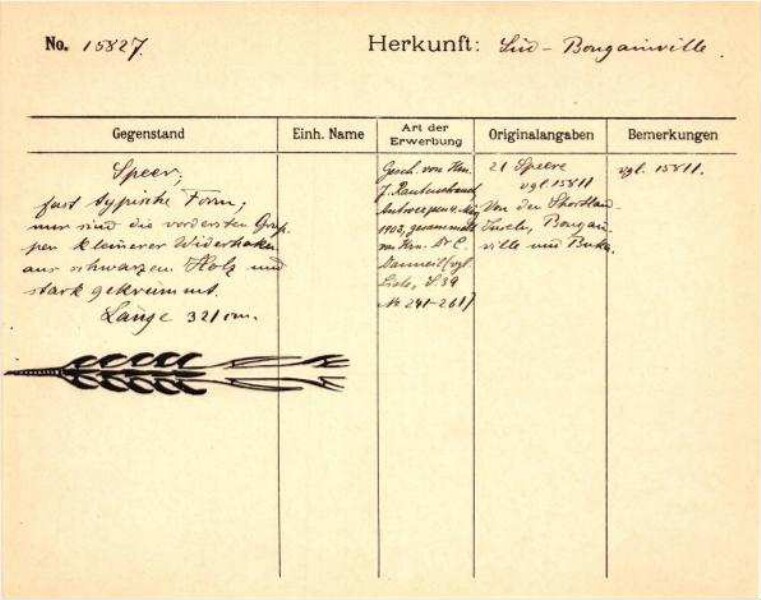 No. 15827.
Herkunft: Süd-Bougainville.
Gegenstand
Einh. Name
Art der Erwerbung
Originalangaben
Bemerkungen
Speer,
fast typische Form;
nur sind die vordersten Grup-
pen kleinerer Widerhaken
aus schwarzem Holz und
stark gekrümmt.
Länge 321 cm.
Gesch. von Hrn.
J. Rautenstrauch
Antwerpen 4. Mai
1903, gesammelt
von Hrn. Dr C.
Danneil (vgl.
Liste, S. 39
No 241-261)
21 Speere
vgl. 15811
Von den Shortland-
Inseln, Bougain-
ville und Buka.
vgl. 15811.